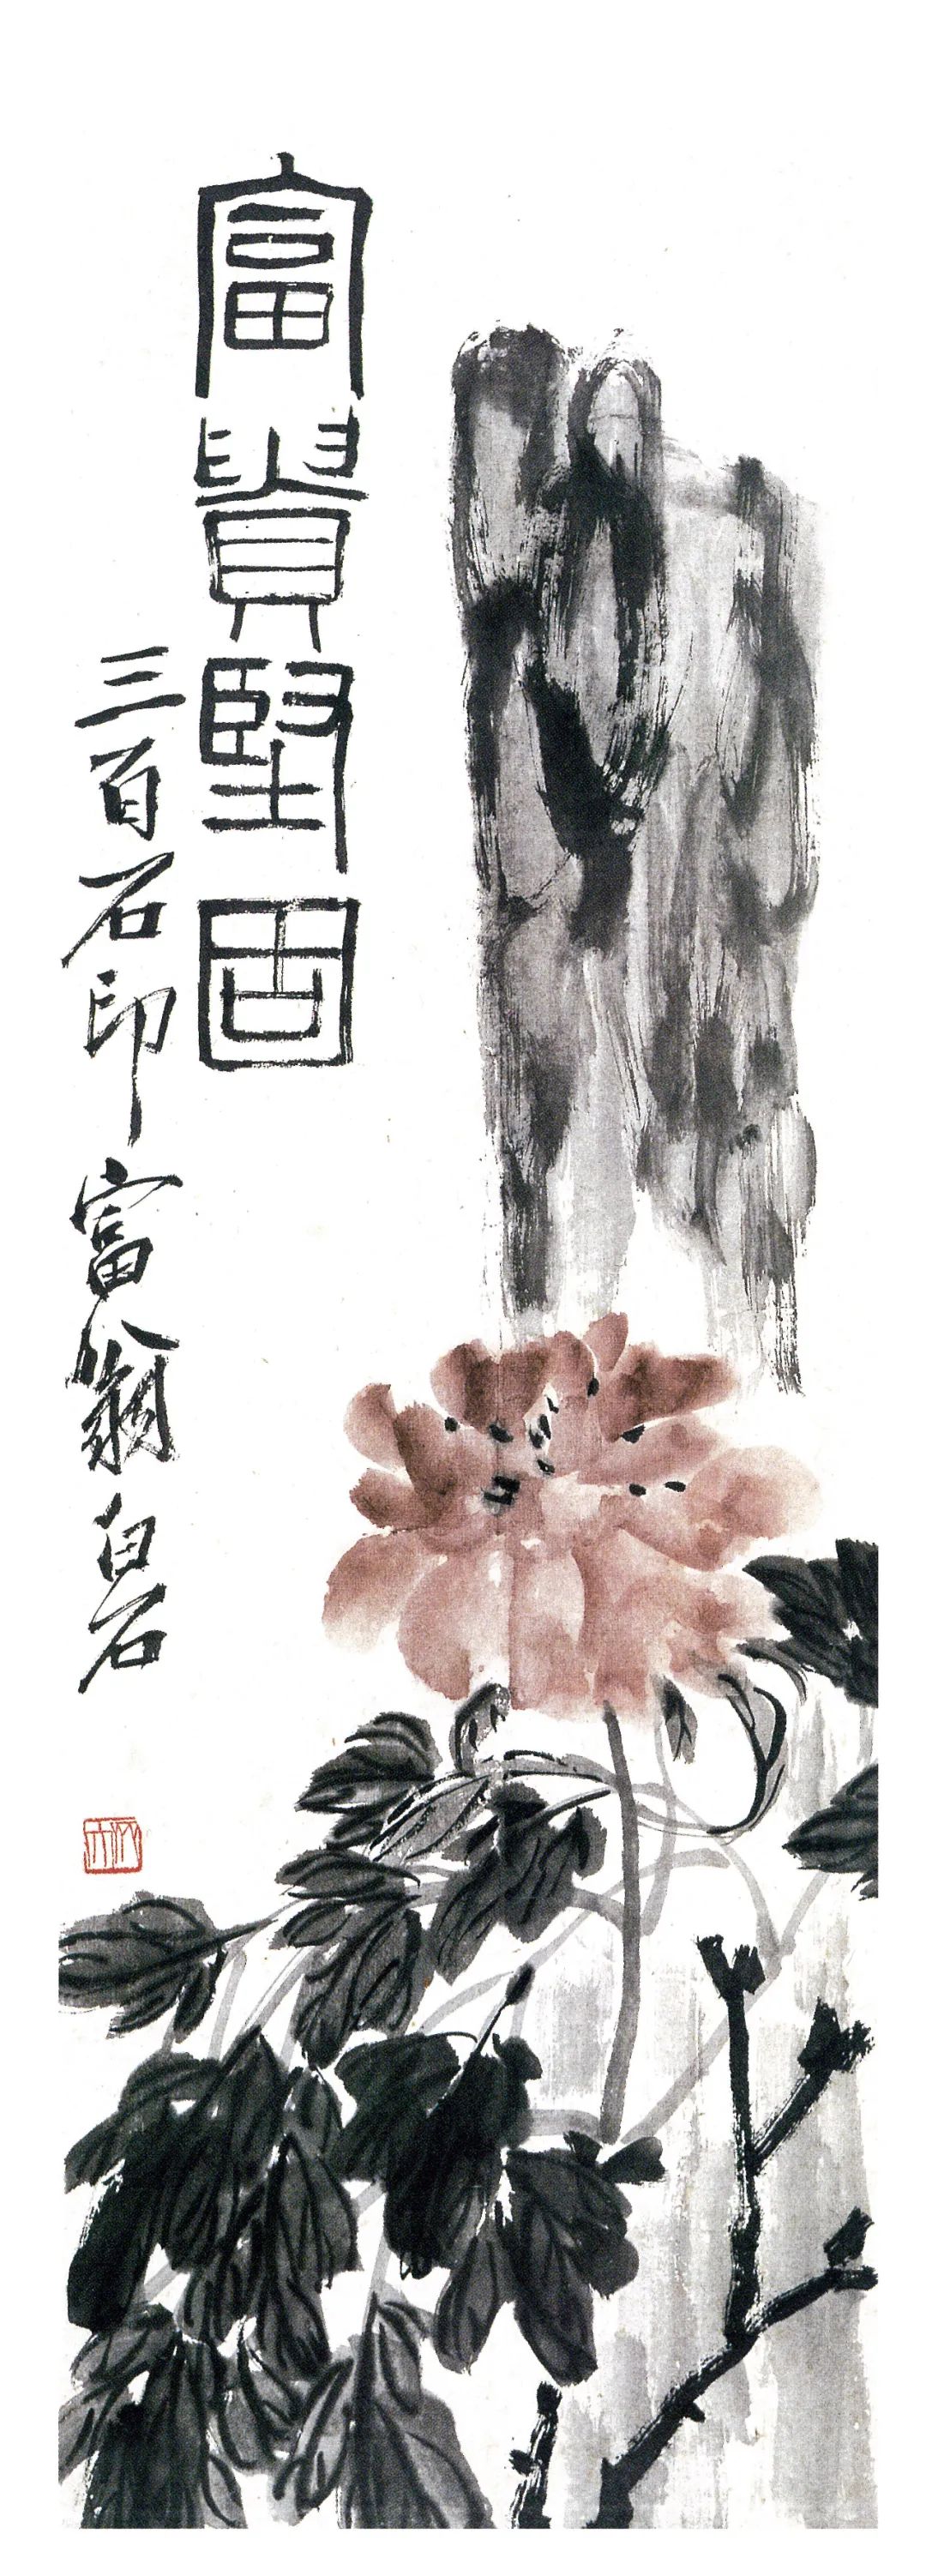 富貴堅固
三百石印富翁白石